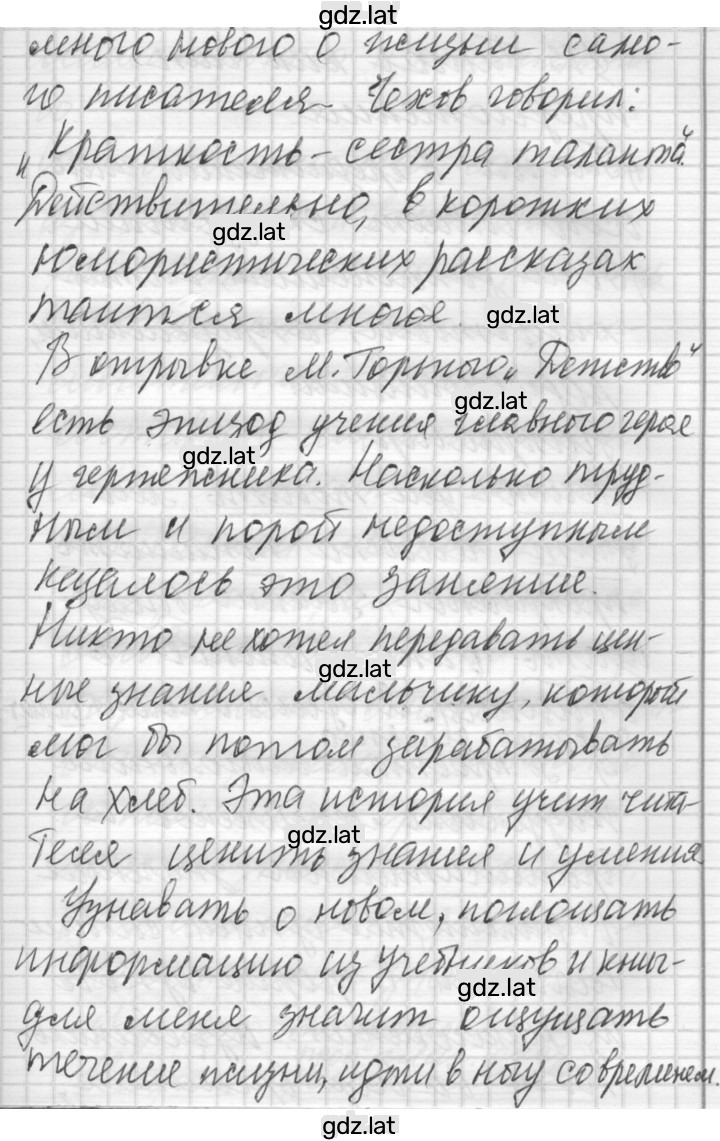 gdz.lat
много нового о жизни само-
го писателя. Чехов говорил:
„Краткость – сестра таланта".
Действительно, в коротких
gdz.lat
юмористических рассказах
таится многое.
gdz.lat
В отрывке М. Горького „Детство"
gdz.lat
есть эпизод учения главного героя
gdz.lat
у чертежника. Насколько труд-
ным и порой недоступным
казалось это занятие.
Никто не хотел передавать цен-
gdz.lat
ные знания мальчику, который
мог бы потом зарабатывать
на хлеб. Эта история учит чита-
gdz.lat
теля ценить знания и умения.
Узнавать о новом, поглощать
информацию из учебников и книг-
gdz.lat
для меня значит ощущать
течение жизни, идти в ногу со временем.
gdz.lat